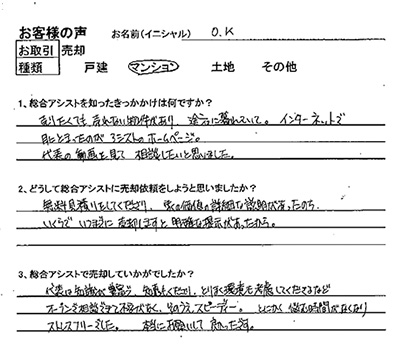 お客様の声 お名前(イニシャル) O.K
お取引 売却
種類 戸建 マンション 土地 その他
1、総合アシストを知ったきっかけは何ですか?
売りたくても売れない物件があり、途方に暮れていて。インターネットで
目にとまったのがアシストのホームページ。
代表の動画を見て 相談したいと思いました。
2、どうして総合アシストに売却依頼をしようと思いましたか?
無料見積りをしてくださり、家の価値の詳細な説明があったのち、
いくらでいつまでに売却しますと明確な提示があったから。
3、総合アシストで売却していかがでしたか?
代表は知識が豊富で、知恵もくださり、とりまく環境も考慮してくださるなど
オープンで相談できて不安がなく、そのうえ、スピーディー。とにかく悩む時間がなくなり
ストレスフリーでした。 本当にお願いして良かったです。